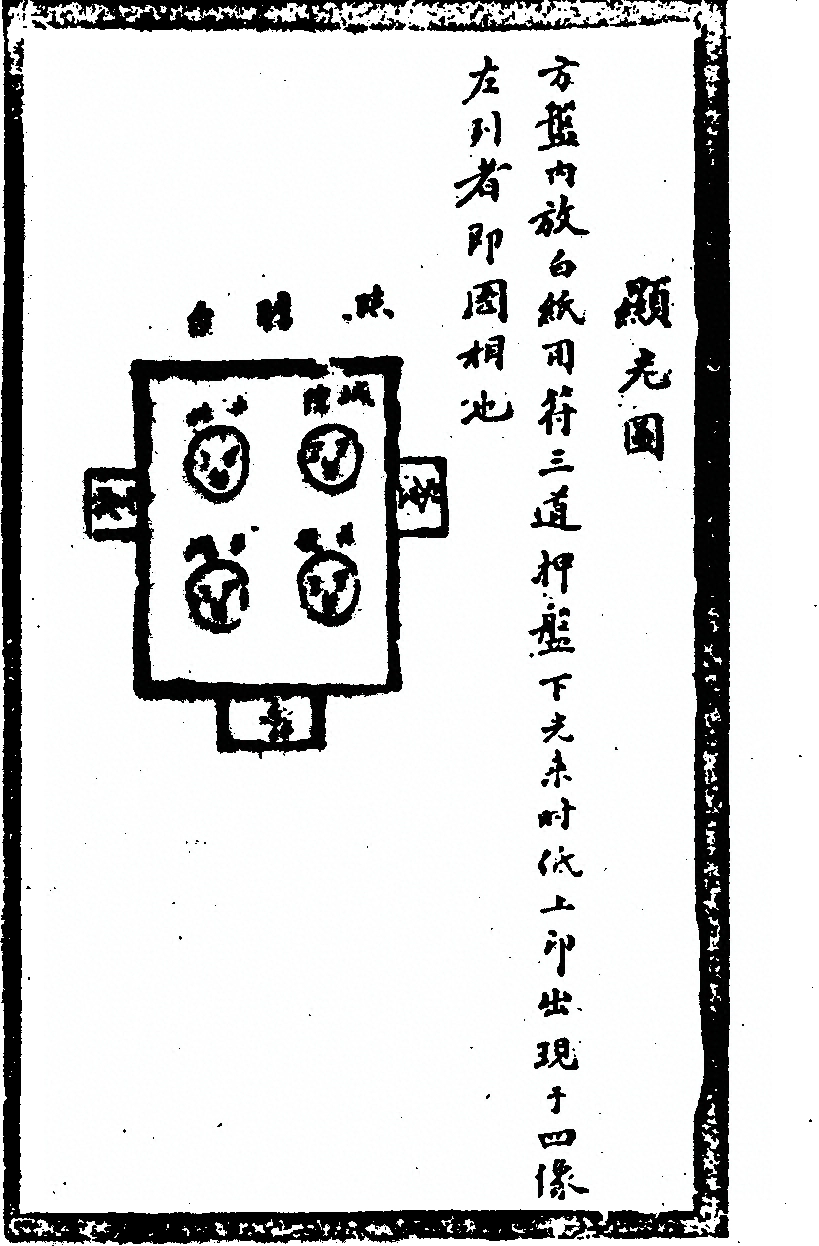 顯光圖
方盤內放白紙用符三道押盤下光来时紙上印出現于四像
左列者即圖相也